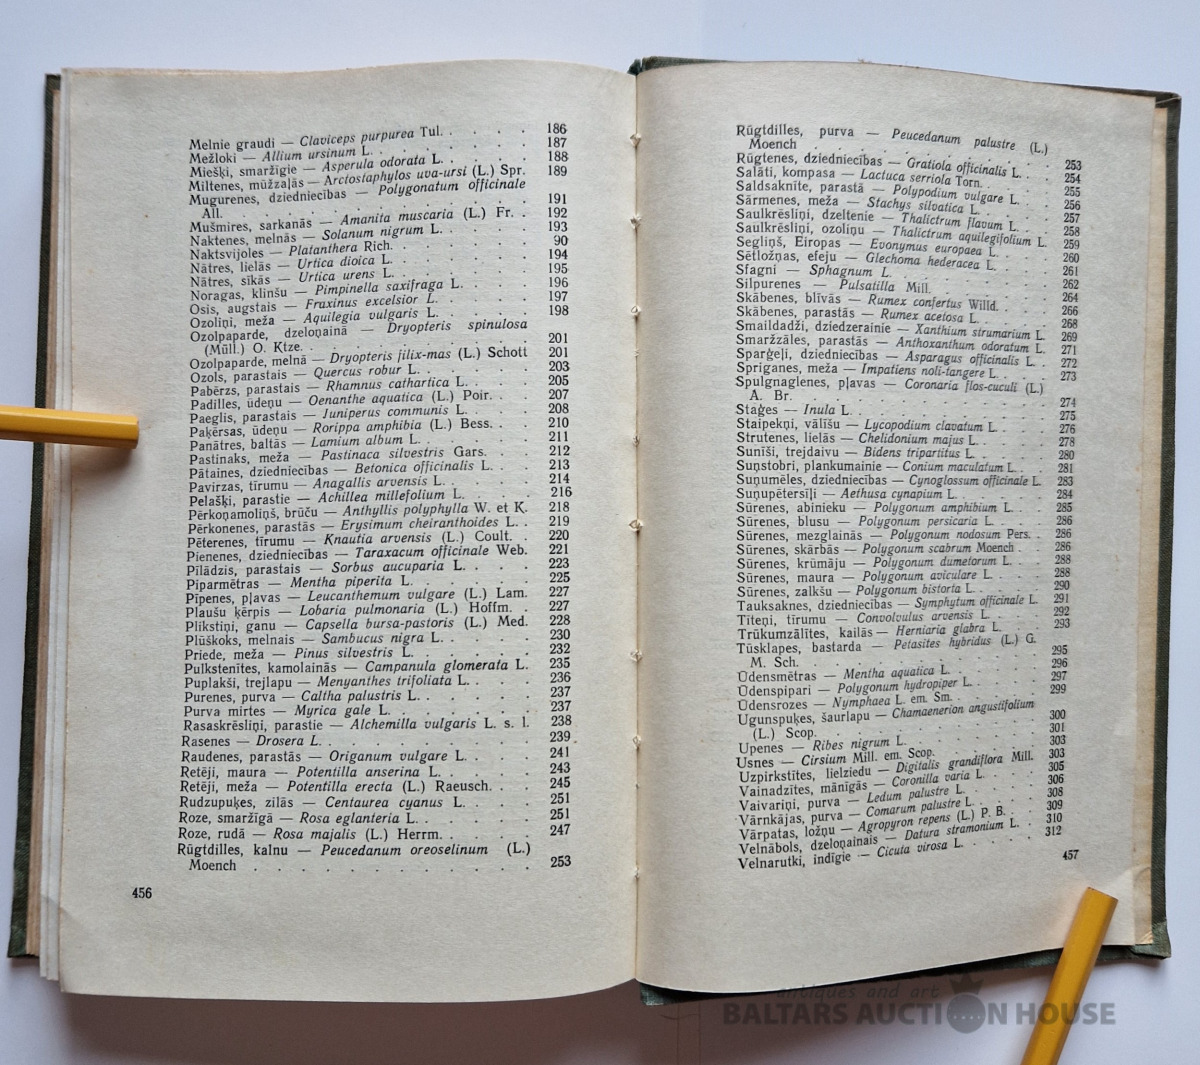 Melnie graudi — Claviceps purpurea Tul. . . . . 186
Mežloki — Allium ursinum L. . . . . . . 187
Miešķi, smaržīgie — Asperula odorata L. . . . . 188
Miltenes, mūžzaļās — Arctostaphylos uva-ursi (L.) Spr. 189
Mugurenes, dziedniecības — Polygonatum officinale
All. . . . . . . . . . . . . 191
Mušmires, sarkanās — Amanita muscaria (L.) Fr. . 192
Naktenes, melnās — Solanum nigrum L. . . . . 193
Naktsvijoles — Platanthera Rich. . . . . . 90
Nātres, lielās — Urtica dioica L. . . . . . 194
Nātres, sīkās — Urtica urens L. . . . . . 195
Noragas, klinšu — Pimpinella saxifraga L. . . . 196
Osis, augstais — Fraxinus excelsior L. . . . . 197
Ozoliņi, meža — Aquilegia vulgaris L. . . . . 198
Ozolpaparde, dzeloņainā — Dryopteris spinulosa
(Müll.) O. Ktze. . . . . . . . . . 201
Ozolpaparde, melnā — Dryopteris filix-mas (L.) Schott 201
Ozols, parastais — Quercus robur L. . . . . . 203
Pabērzs, parastais — Rhamnus cathartica L. . . . 205
Padilles, ūdeņu — Oenanthe aquatica (L.) Poir. . . 207
Paeglis, parastais — Juniperus communis L. . . . 208
Paķērsas, ūdeņu — Rorippa amphibia (L.) Bess. . . 210
Panātres, baltās — Lamium album L. . . . . . 211
Pastinaks, meža — Pastinaca silvestris Gars. . . . 212
Pātaines, dziedniecības — Betonica officinalis L. . . 213
Pavirzas, tīrumu — Anagallis arvensis L. . . . . 214
Pelašķi, parastie — Achillea millefolium L. . . . 216
Pērkoņamoliņš, brūču — Anthyllis polyphylla W. et K. 218
Pērkonenes, parastās — Erysimum cheiranthoides L. . 219
Pēterenes, tīrumu — Knautia arvensis (L.) Coult. . 220
Pienenes, dziedniecības — Taraxacum officinale Web. 221
Pīlādzis, parastais — Sorbus aucuparia L. . . . 223
Piparmētras — Mentha piperita L. . . . . . 225
Pīpenes, pļavas — Leucanthemum vulgare (L.) Lam. 227
Plaušu ķērpis — Lobaria pulmonaria (L.) Hoffm. . 227
Plikstiņi, ganu — Capsella bursa-pastoris (L.) Med. 228
Plūškoks, melnais — Sambucus nigra L. . . . . 230
Priede, meža — Pinus silvestris L. . . . . . 232
Pulkstenītes, kamolainās — Campanula glomerata L. 235
Puplakši, trejlapu — Menyanthes trifoliata L. . . . 236
Purenes, purva — Caltha palustris L. . . . . . 237
Purva mirtes — Myrica gale L. . . . . . . 237
Rasaskrēsliņi, parastie — Alchemilla vulgaris L. s. l. 238
Rasenes — Drosera L. . . . . . . . . . 239
Raudenes, parastās — Origanum vulgare L. . . . 241
Retēji, maura — Potentilla anserina L. . . . . 243
Retēji, meža — Potentilla erecta (L.) Raeusch. . . 245
Rudzupuķes, zilās — Centaurea cyanus L. . . . 251
Roze, smaržīgā — Rosa eglanteria L. . . . . . 251
Roze, rudā — Rosa majalis (L.) Herrm. . . . . 247
Rūgtdilles, kalnu — Peucedanum oreoselinum (L.)
Moench . . . . . . . . . . . . . 253
456
Rūgtdilles, purva — Peucedanum palustre (L.)
Moench . . . . . . . . . . . . 253
Rūgtenes, dziedniecības — Gratiola officinalis L. . . 254
Salāti, kompasa — Lactuca serriola Torn. . . . . 255
Saldsaknīte, parastā — Polypodium vulgare L. . . 256
Sārmenes, meža — Stachys silvatica L. . . . . 257
Saulkrēsliņi, dzeltenie — Thalictrum flavum L. . . 258
Saulkrēsliņi, ozoliņu — Thalictrum aquilegifolium L. 259
Segliņš, Eiropas — Evonymus europaea L. . . . 260
Sētložņas, efeju — Glechoma hederacea L. . . . 261
Sfagni — Sphagnum L. . . . . . . . . 262
Silpurenes — Pulsatilla Mill. . . . . . . . 264
Skābenes, blīvās — Rumex confertus Willd. . . . 266
Skābenes, parastās — Rumex acetosa L. . . . . 268
Smaildadži, dziedzerainie — Xanthium strumarium L. 269
Smaržzāles, parastās — Anthoxanthum odoratum L. . 271
Sparģeļi, dziedniecības — Asparagus officinalis L. . 272
Spriganes, meža — Impatiens noli-tangere L. . . . 273
Spulgnaglenes, pļavas — Coronaria flos-cuculi (L.)
A. Br. . . . . . . . . . . . . 274
Staģes — Inula L. . . . . . . . . . . 275
Staipekņi, vālīšu — Lycopodium clavatum L. . . . 276
Strutenes, lielās — Chelidonium majus L. . . . . 278
Sunīši, trejdaivu — Bidens tripartitus L. . . . . 280
Suņstobri, plankumainie — Conium maculatum L. . . 281
Suņumēles, dziedniecības — Cynoglossum officinale L. 283
Suņupētersīļi — Aethusa cynapium L. . . . . . 284
Sūrenes, abinieku — Polygonum amphibium L. . . . 285
Sūrenes, blusu — Polygonum persicaria L. . . . . 286
Sūrenes, mezglainās — Polygonum nodosum Pers. . . 286
Sūrenes, skārbās — Polygonum scabrum Moench . . 286
Sūrenes, krūmāju — Polygonum dumetorum L. . . . 288
Sūrenes, maura — Polygonum aviculare L. . . . . 288
Sūrenes, zalkšu — Polygonum bistorta L. . . . . 290
Tauksaknes, dziedniecības — Symphytum officinale L. 291
Tīteņi, tīrumu — Convolvulus arvensis L. . . . . 292
Trūkumzālītes, kailās — Herniaria glabra L. . . . 293
Tūsklapes, bastarda — Petasites hybridus (L.) G.
M. Sch. . . . . . . . . . . . . 295
Ūdensmētras — Mentha aquatica L. . . . . . 296
Ūdenspipari — Polygonum hydropiper L. . . . . 297
Ūdensrozes — Nymphaea L. em. Sm. . . . . . 299
Ugunspuķes, šaurlapu — Chamaenerion angustifolium
(L.) Scop. . . . . . . . . . . . 300
Upenes — Ribes nigrum L. . . . . . . . 301
Usnes — Cirsium Mill. em. Scop. . . . . . . 303
Uzpirkstītes, lielziedu — Digitalis grandiflora Mill. 303
Vainadzītes, mānīgās — Coronilla varia L. . . . . 305
Vaivariņi, purva — Ledum palustre L. . . . . . 306
Vārnkājas, purva — Comarum palustre L. . . . . 308
Vārpatas, ložņu — Agropyron repens (L.) P. B. . . 309
Velnābols, dzeloņainais — Datura stramonium L. . . 310
Velnarutki, indīgie — Cicuta virosa L. . . . . . 312
457
antiques and art
BALTARS AUCTION HOUSE